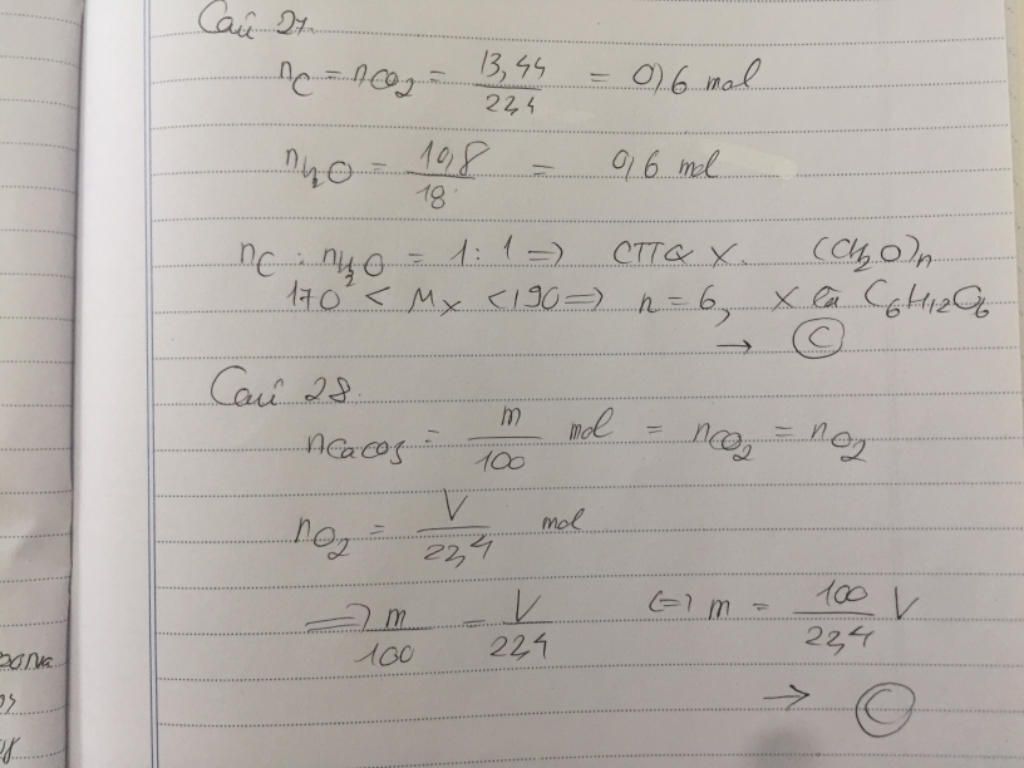 Câu 27.
nC = nCO2 = 13,44 / 22,4 = 0,6 mol
nH2O = 10,8 / 18 = 0,6 mol
nC : nH2O = 1 : 1 => CTTQ X. (CH2O)n
170 < MX < 190 => n = 6, X là C6H12O6
→ C
Câu 28.
nCaCO3 = m / 100 mol = nCO2 = nO2
nO2 = V / 22,4 mol
=> m / 100 = V / 22,4 <=> m = 100 / 22,4 V
→ C